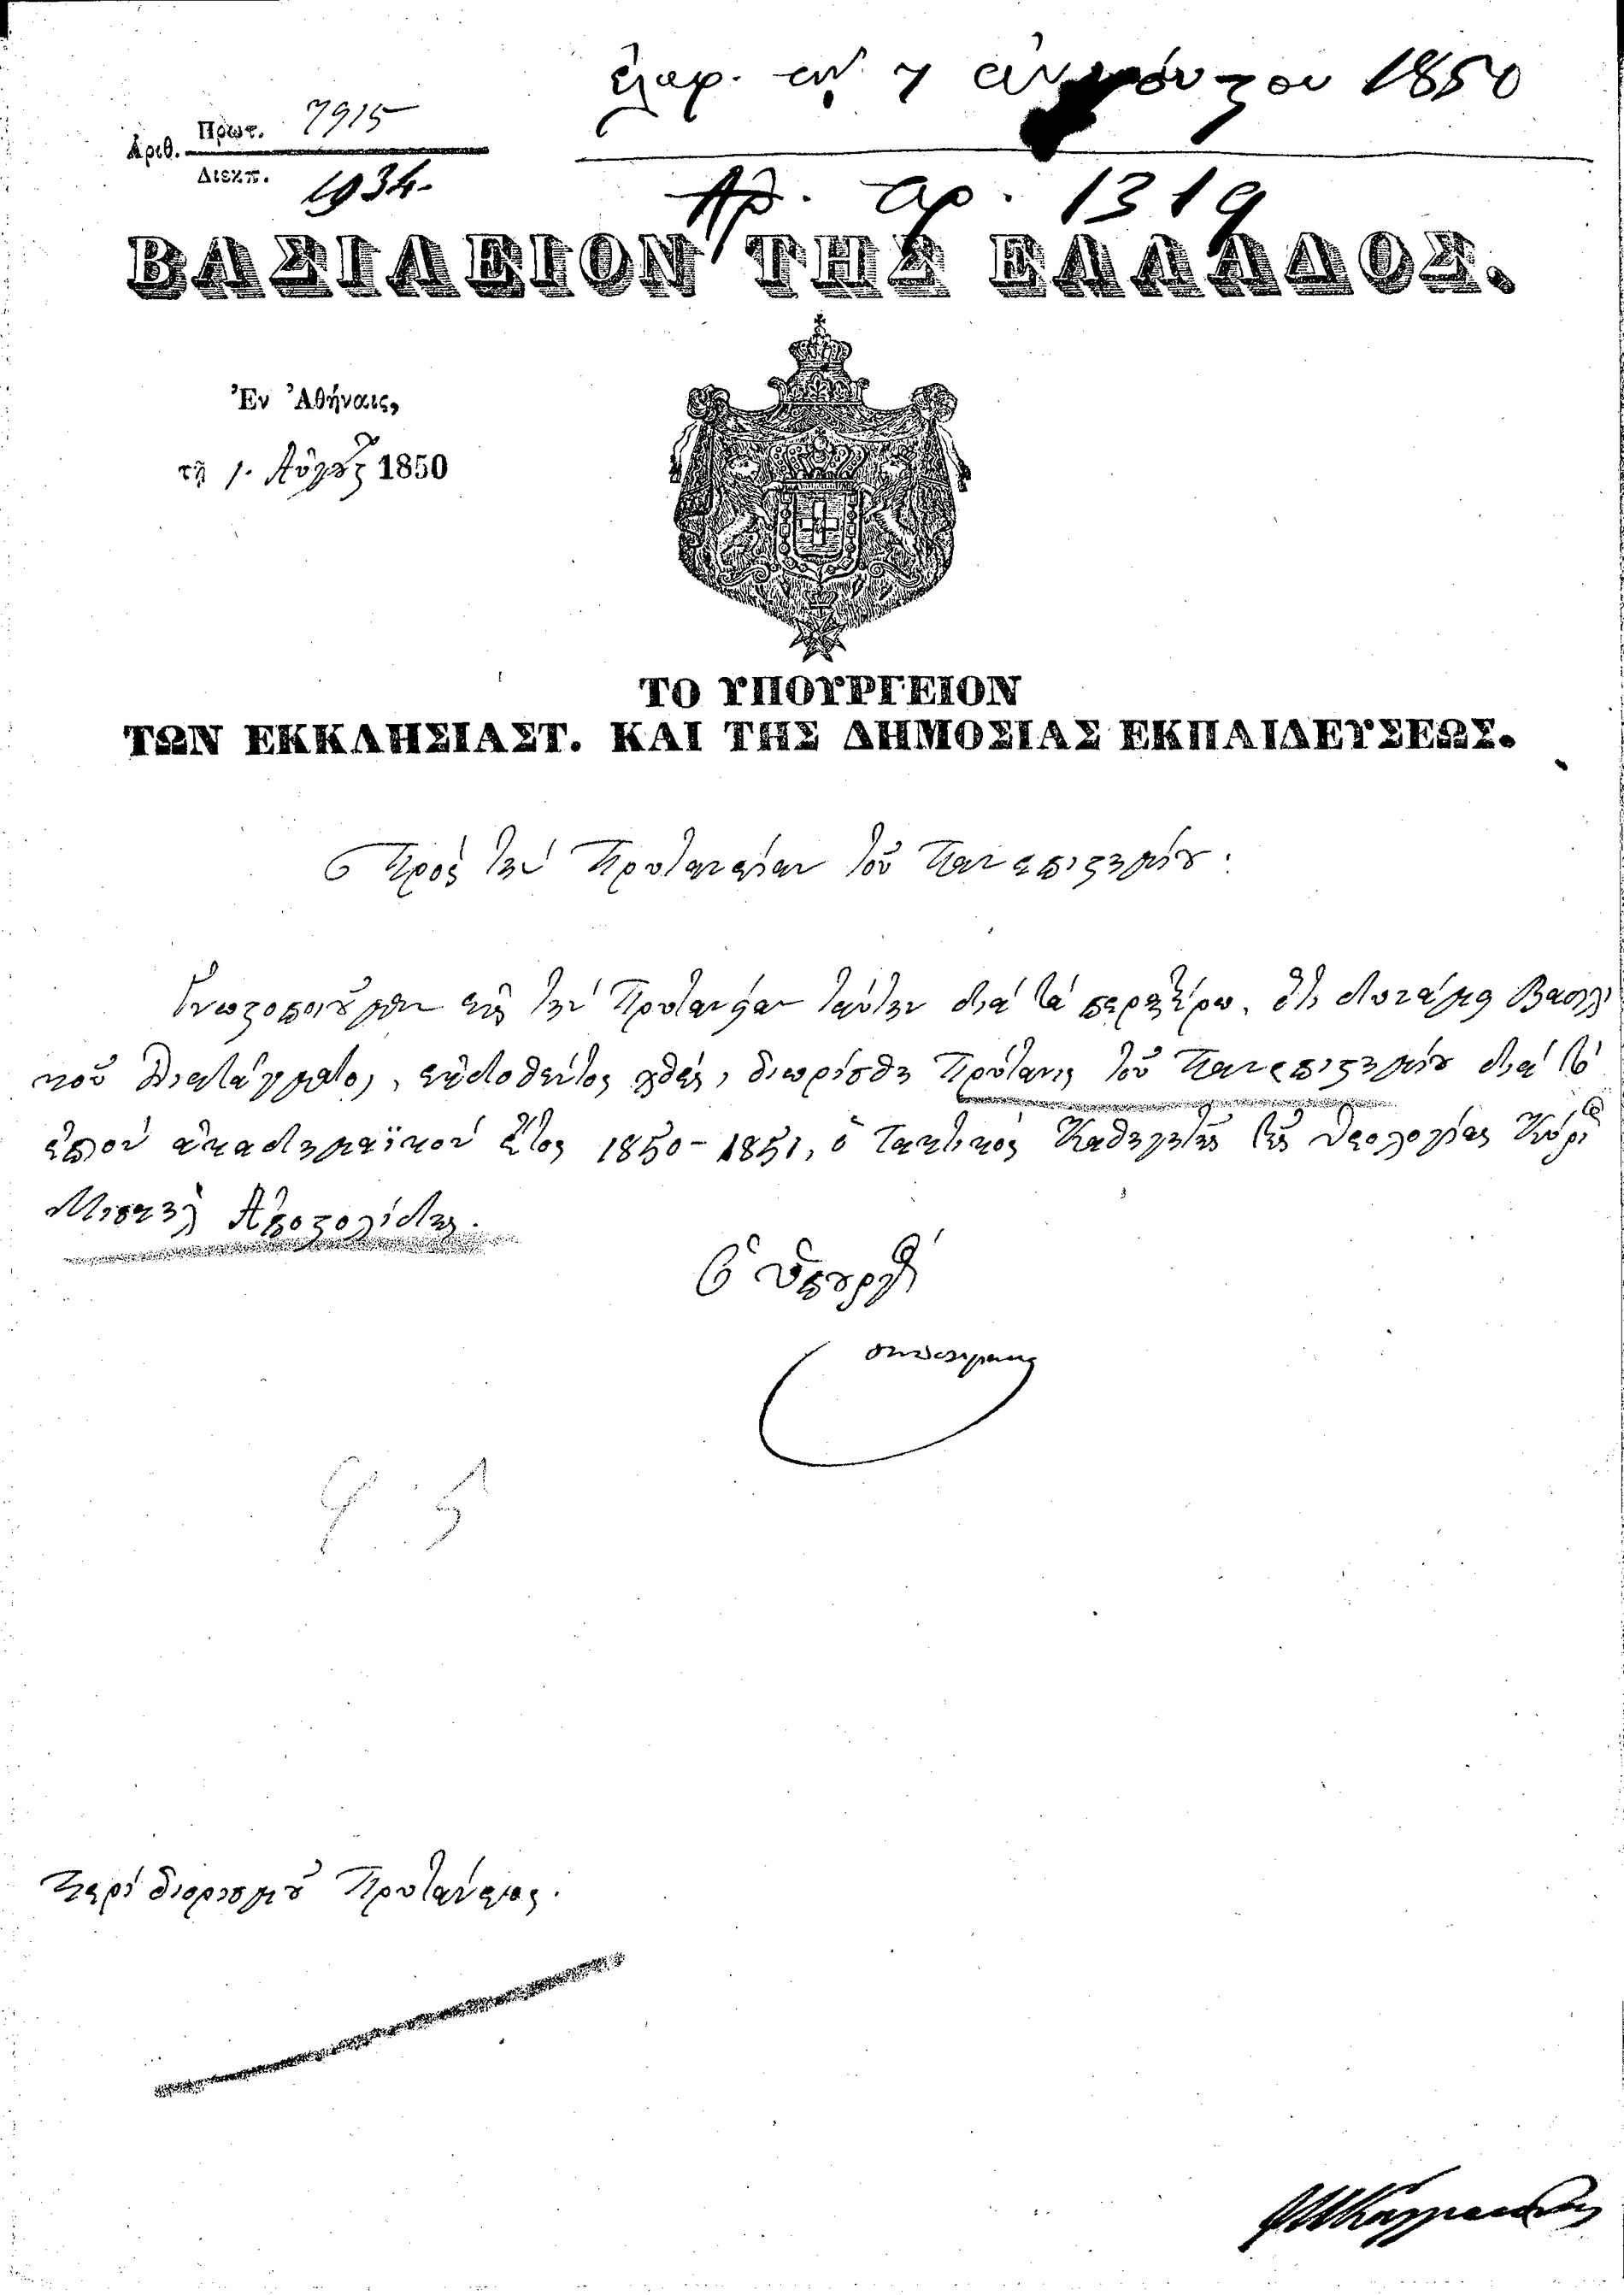 ἐλήφ. τὴν 7 αὐγούστου 1850
Ἀριθ. Πρωτ. 7915
Διεκπ. 1934.
Ἀρ. πρ. 1319
ΒΑΣΙΛΕΙΟΝ ΤΗΣ ΕΛΛΑΔΟΣ.
Ἐν Ἀθήναις,
τῇ 1. Αὐγούστ 1850
ΤΟ ΥΠΟΥΡΓΕΙΟΝ
ΤΩΝ ΕΚΚΛΗΣΙΑΣΤ. ΚΑΙ ΤΗΣ ΔΗΜΟΣΙΑΣ ΕΚΠΑΙΔΕΥΣΕΩΣ.
Πρὸς τὴν Πρυτανείαν τοῦ Πανεπιστημίου.
Γνωστοποιοῦμεν εἰς τὴν Πρυτανείαν ταύτην διὰ τὰ περαιτέρω, ὅτι δυνάμει Βασιλι
κοῦ Διατάγματος, ἐκδοθέντος χθές, διωρίσθη Πρύτανις τοῦ Πανεπιστημίου διὰ τὸ
ἐπιὸν ἀκαδημαϊκὸν ἔτος 1850-1851, ὁ Τακτικὸς Καθηγητὴς τῆς Θεολογίας Κύριος
Μισαὴλ Ἀποστολίδης.
Ὁ Ὑπουργὸς
Περὶ διορισμοῦ Πρυτάνεως.